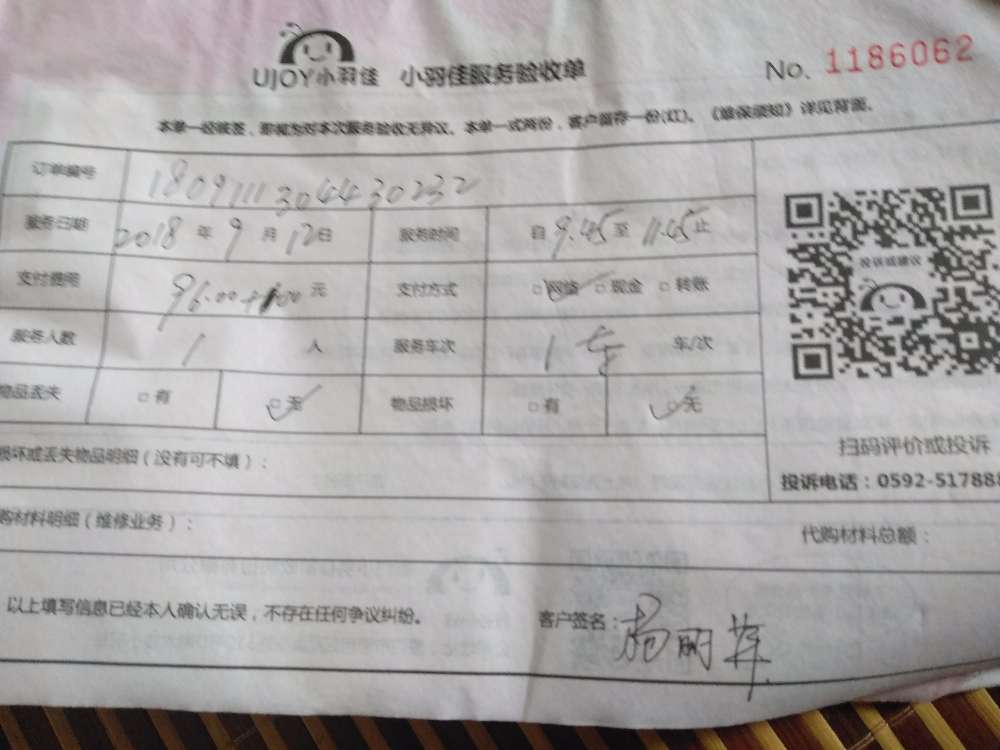 UJOY小羽佳 小羽佳服务验收单 No. 1186062
本单一经核签，即视为对本次服务验收无异议。本单一式两份，客户留存一份(红)。《维保须知》详见背面。
订单编号 18091113044430232
服务日期 2018年9月12日 服务时间 自9.45至11.45止
支付费用 元 支付方式 □网络 □现金 □转账
服务人数 1人 服务车次 1车 车/次
物品丢失 □有 □无 物品损坏 □有 □无
投诉或建议
扫码评价或投诉
投诉电话：0592-517888
损坏或丢失物品明细（没有可不填）：
购材料明细（维修业务）：
代购材料总额：
以上填写信息已经本人确认无误，不存在任何争议纠纷。
客户签名：杨丽萍